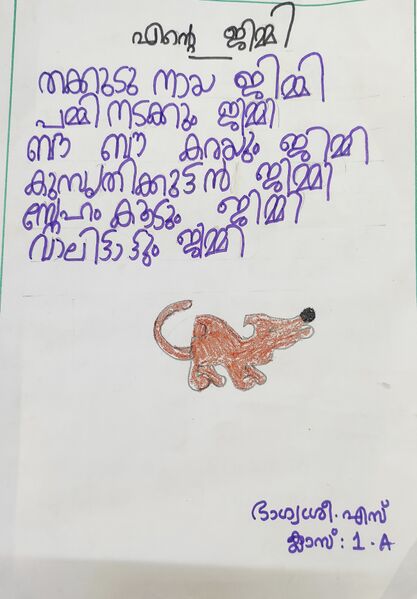 എന്റെ ജിമ്മി
തക്കുടു നായ ജിമ്മി
പമ്മി നടക്കും ജിമ്മി
ബൗ ബൗ കരയും ജിമ്മി
കുസൃതിക്കുട്ടൻ ജിമ്മി
സ്നേഹം കൂടും ജിമ്മി
വാലിട്ടാട്ടും ജിമ്മി
ഭാഗ്യശ്രീ. എസ്
ക്ലാസ് : 1. A